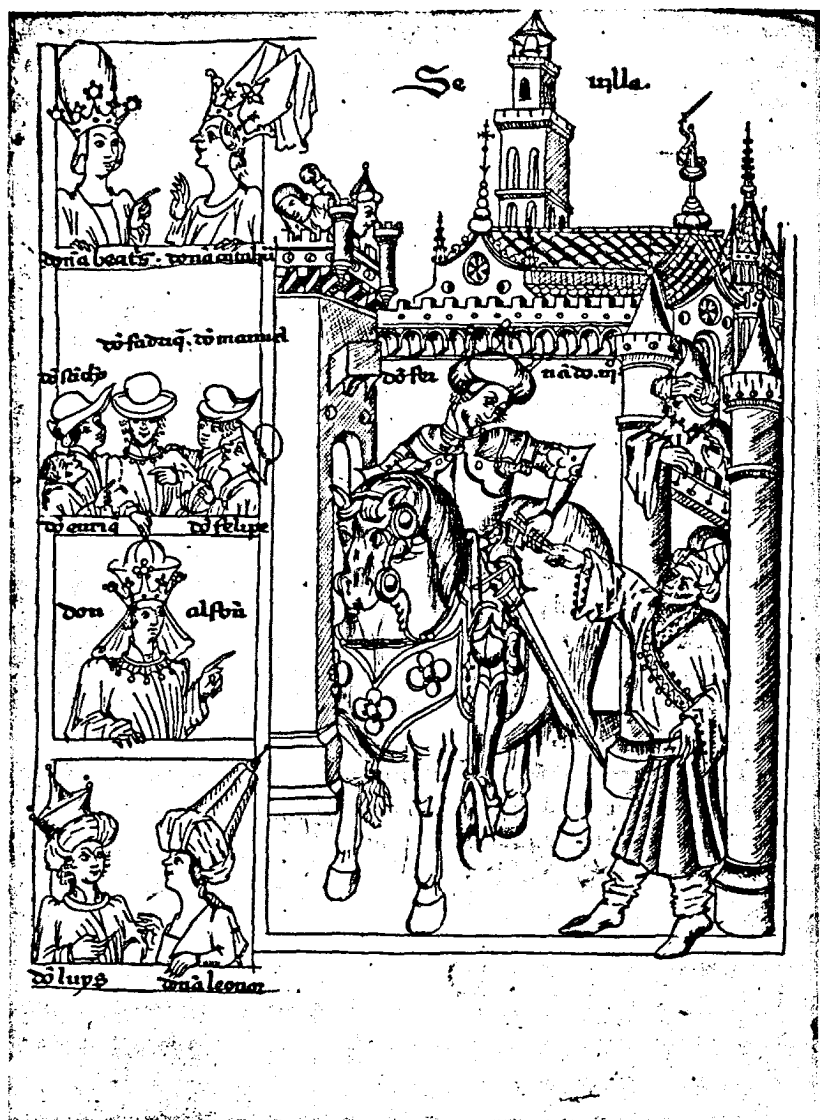 Se uilla.
doña beatꝰ. doña
dõ fadriq̃. dõ manuel
dõ sãcho
dõ fer nãdo. iij
dõ enriq̃ dõ felipe
don alfoñ
dõ luys doña leonor